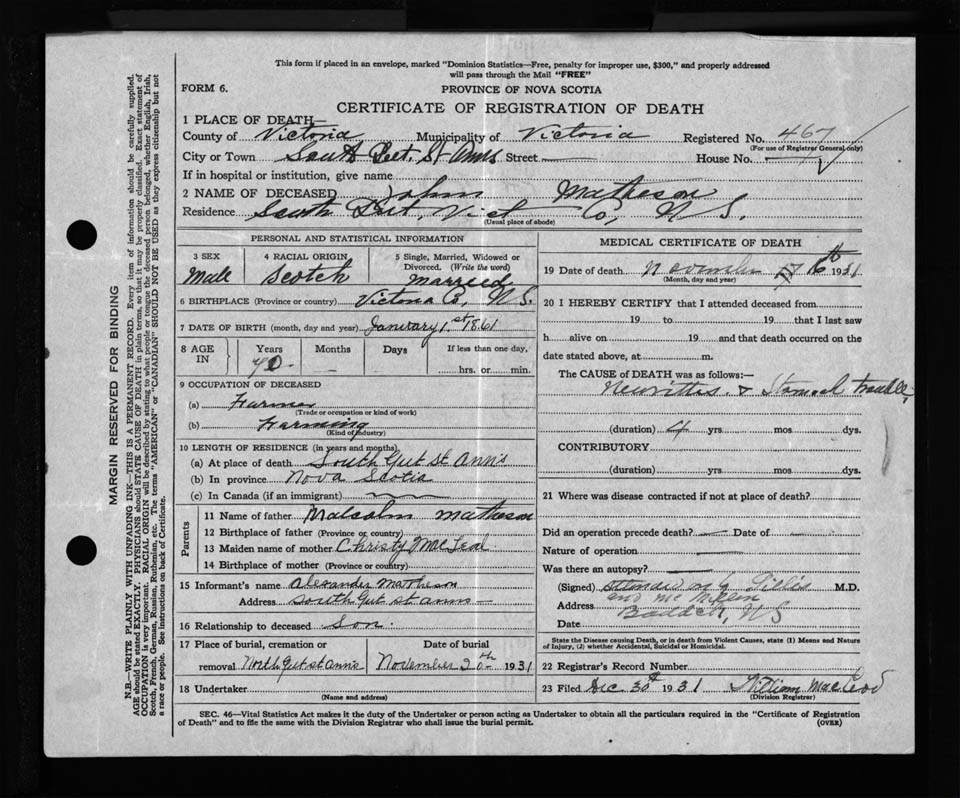 This form if placed in an envelope, marked "Dominion Statistics—Free, penalty for improper use, $300," and properly addressed
will pass through the Mail "FREE"
FORM 6.
PROVINCE OF NOVA SCOTIA
CERTIFICATE OF REGISTRATION OF DEATH
1 PLACE OF DEATH—
County of Victoria Municipality of Victoria Registered No. 467
(For use of Registrar General only)
City or Town South Gut St Anns Street — House No.
If in hospital or institution, give name
2 NAME OF DECEASED John Matheson
Residence South Gut, Vict Co, N.S.
(Usual place of abode)
PERSONAL AND STATISTICAL INFORMATION
3 SEX
Male
4 RACIAL ORIGIN
Scotch
5 Single, Married, Widowed or
Divorced. (Write the word)
Married
6 BIRTHPLACE (Province or country) Victoria Co, N.S.
7 DATE OF BIRTH (month, day and year) January 1st 1861
8 AGE IN
Years Months Days If less than one day,
70 — hrs. or min.
9 OCCUPATION OF DECEASED
(a) Farmer
(Trade or occupation or kind of work)
(b) Farming
(Kind of industry)
10 LENGTH OF RESIDENCE (in years and months)
(a) At place of death South Gut St Ann's
(b) In province Nova Scotia
(c) In Canada (if an immigrant)
Parents
11 Name of father Malcolm Matheson
12 Birthplace of father (Province or country)
13 Maiden name of mother Christy MacLeod
14 Birthplace of mother (Province or country)
15 Informant's name Alexander Matheson
Address South Gut St Anns
16 Relationship to deceased Son
17 Place of burial, cremation or
removal North Gut St Anns
Date of burial
November 20th 1931
18 Undertaker
(Name and address)
MEDICAL CERTIFICATE OF DEATH
19 Date of death November 16th 1931
(Month, day and year)
20 I HEREBY CERTIFY that I attended deceased from
19 to 19 that I last saw
h alive on 19 and that death occurred on the
date stated above, at m.
The CAUSE of DEATH was as follows:—
Neuritis & Stomach trouble,
(duration) 4 yrs mos dys.
CONTRIBUTORY
(duration) yrs mos dys.
21 Where was disease contracted if not at place of death?
Did an operation precede death? — Date of —
Nature of operation —
Was there an autopsy? —
(Signed) Gillis M.D.
Address and McMillen
Baddeck, N.S
Date
State the Disease causing Death, or in death from Violent Causes, state (1) Means and Nature
of Injury, (2) whether Accidental, Suicidal or Homicidal.
22 Registrar's Record Number
23 Filed Dec. 30th 1931 William MacLeod
(Division Registrar)
SEC. 46—Vital Statistics Act makes it the duty of the Undertaker or person acting as Undertaker to obtain all the particulars required in the "Certificate of Registration
of Death" and to file the same with the Division Registrar who shall issue the burial permit.
(OVER)
MARGIN RESERVED FOR BINDING
N.B.—WRITE PLAINLY WITH UNFADING INK—THIS IS A PERMANENT RECORD. Every item of information should be carefully supplied.
AGE should be stated EXACTLY. PHYSICIANS should STATE CAUSE OF DEATH in plain terms, so that it may be properly classified. Exact statement of
OCCUPATION is very important. RACIAL ORIGIN will be described by stating to what people or tongue the deceased person belonged, whether English, Irish,
Scotch, French, German, Russian, Ruthenian, etc. The terms "AMERICAN" or "CANADIAN" SHOULD NOT BE USED as they express citizenship but not
a race or people. See instructions on back of Certificate.